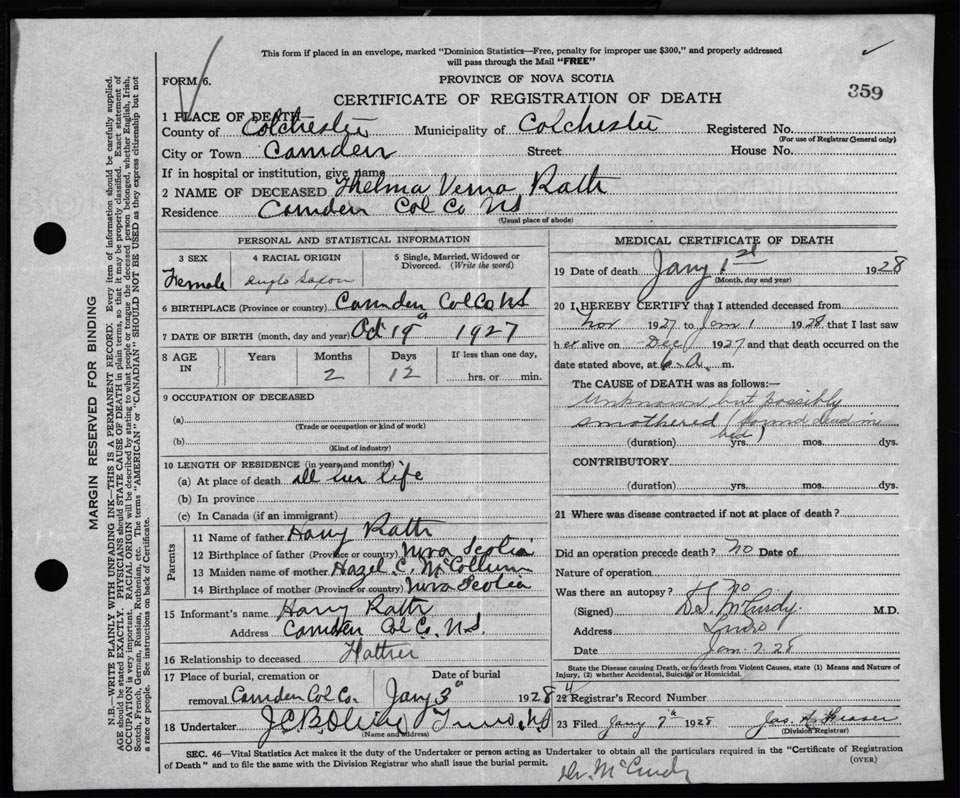 This form if placed in an envelope, marked "Dominion Statistics—Free, penalty for improper use $300," and properly addressed
will pass through the Mail "FREE"
FORM 6.
PROVINCE OF NOVA SCOTIA
359
CERTIFICATE OF REGISTRATION OF DEATH
1 PLACE OF DEATH
County of Colchester Municipality of Colchester Registered No.
(For use of Registrar General only)
City or Town Camden Street House No.
If in hospital or institution, give name
2 NAME OF DECEASED Thelma Verna Rath
Residence Camden Col Co NS
(Usual place of abode)
PERSONAL AND STATISTICAL INFORMATION
3 SEX 4 RACIAL ORIGIN 5 Single, Married, Widowed or
Divorced. (Write the word)
Female Anglo Saxon
6 BIRTHPLACE (Province or country) Camden Col Co NS
7 DATE OF BIRTH (month, day and year) Oct 19 1927
8 AGE IN Years Months Days If less than one day,
2 12 hrs. or min.
9 OCCUPATION OF DECEASED
(a)
(Trade or occupation or kind of work)
(b)
(Kind of industry)
10 LENGTH OF RESIDENCE (in years and months)
(a) At place of death all her life
(b) In province
(c) In Canada (if an immigrant)
Parents
11 Name of father Harry Rath
12 Birthplace of father (Province or country) Nova Scotia
13 Maiden name of mother Hazel C. McCollum
14 Birthplace of mother (Province or country) Nova Scotia
15 Informant's name Harry Rath
Address Camden Col Co. N.S.
16 Relationship to deceased Father
17 Place of burial, cremation or Date of burial
removal Camden Col Co. Jany 3 1928
18 Undertaker J.C.B. Truro, NS
(Name and address)
MEDICAL CERTIFICATE OF DEATH
19 Date of death Jany 1st 1928
(Month, day and year)
20 I HEREBY CERTIFY that I attended deceased from
Nov 1927 to Jan 1 1928 that I last saw
her alive on Dec 1927 and that death occurred on the
date stated above, at 6 A. m.
The CAUSE of DEATH was as follows:—
Unknown but possibly
smothered (found dead in
bed)
(duration) yrs. mos. dys.
CONTRIBUTORY
(duration) yrs. mos. dys.
21 Where was disease contracted if not at place of death?
Did an operation precede death? no Date of
Nature of operation
Was there an autopsy? no
(Signed) McCurdy M.D.
Address Truro
Date Jan. 7. 28
State the Disease causing Death, or in death from Violent Causes, state (1) Means and Nature of
Injury, (2) whether Accidental, Suicidal or Homicidal.
22 Registrar's Record Number 4
23 Filed Jany 7th 1928 Jas. A. Fraser
(Division Registrar)
SEC. 46—Vital Statistics Act makes it the duty of the Undertaker or person acting as Undertaker to obtain all the particulars required in the "Certificate of Registration
of Death" and to file the same with the Division Registrar who shall issue the burial permit. (OVER)
Dr. McCurdy
MARGIN RESERVED FOR BINDING
N.B.—WRITE PLAINLY WITH UNFADING INK—THIS IS A PERMANENT RECORD: Every item of information should be carefully supplied.
AGE should be stated EXACTLY. PHYSICIANS should STATE CAUSE OF DEATH in plain terms, so that it may be properly classified. Exact statement of
OCCUPATION is very important. RACIAL ORIGIN will be described by stating to what people or tongue the deceased person belonged, whether English, Irish,
Scotch, French, German, Russian, Ruthenian, etc. The terms "AMERICAN" or "CANADIAN" SHOULD NOT BE USED as they express citizenship but not
a race or people. See instructions on back of Certificate.